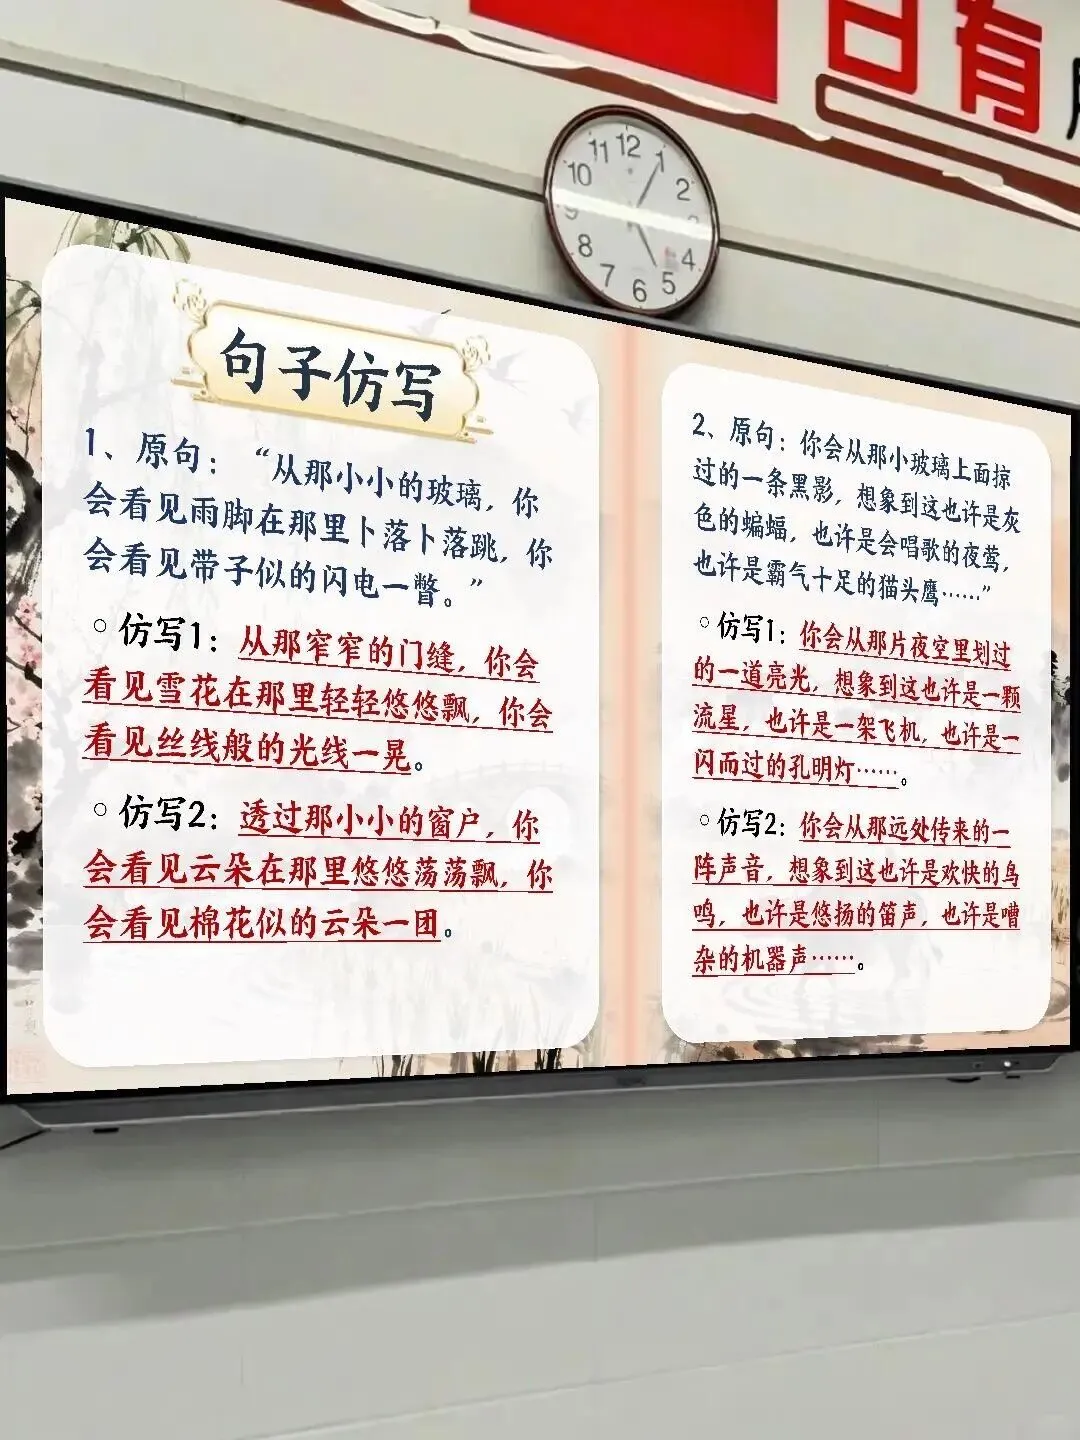 日有
11 12 1
10 2
9 3
8 4
7 6 5
句子仿写
1、原句：“从那小小的玻璃，你
会看见雨脚在那里卜落卜落跳，你
会看见带子似的闪电一瞥。”
仿写1：从那窄窄的门缝，你会
看见雪花在那里轻轻悠悠飘，你会
看见丝线般的光线一晃。
仿写2：透过那小小的窗户，你
会看见云朵在那里悠悠荡荡飘，你
会看见棉花似的云朵一团。
2、原句：你会从那小玻璃上面掠
过的一条黑影，想象到这也许是灰
色的蝙蝠，也许是会唱歌的夜莺，
也许是霸气十足的猫头鹰……”
仿写1：你会从那片夜空里划过
的一道亮光，想象到这也许是一颗
流星，也许是一架飞机，也许是一
闪而过的孔明灯……。
仿写2：你会从那远处传来的一
阵声音，想象到这也许是欢快的鸟
鸣，也许是悠扬的笛声，也许是嘈
杂的机器声……。